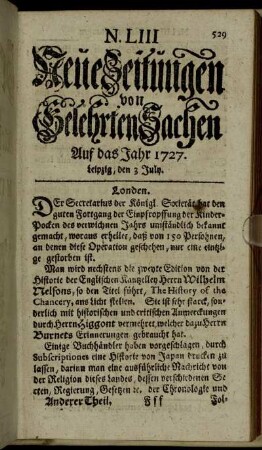 N. LIII
529
Neue Zeitungen
von
Gelehrten Sachen
Auf das Jahr 1727.
Leipzig, den 3 July.
Londen.
DEr Secretarius der Königl. Societät hat den
guten Fortgang der Einpfropffung der Kinder-
Pocken des verwichnen Jahrs umständlich bekannt
gemacht, woraus erhellet, daß von 150 Persohnen,
an denen diese Operation geschehen, nur eine eintzi-
ge gestorben ist.
Man wird nechstens die zweyte Edition von der
Historie der Englischen Kantzelley Herrn Wilhelm
Nelsons, so den Titel führt, The History of the
Chancery, ans Licht stellen. Sie ist sehr starck, son-
derlich mit historischen und critischen Anmerckungen
durch Herrn Ziggont vermehret, welcher dazu Herrn
Burnets Erinnerungen gebraucht hat.
Einige Buchhändler haben vorgeschlagen, durch
Subscriptiones eine Historie von Japan drucken zu
lassen, darinn man eine ausführliche Nachricht von
der Religion dieses Landes, dessen verschiedenen Se-
cten, Regierung, Gesetzen ꝛc. der Chronologie und
Anderer Theil. Fff Fol-